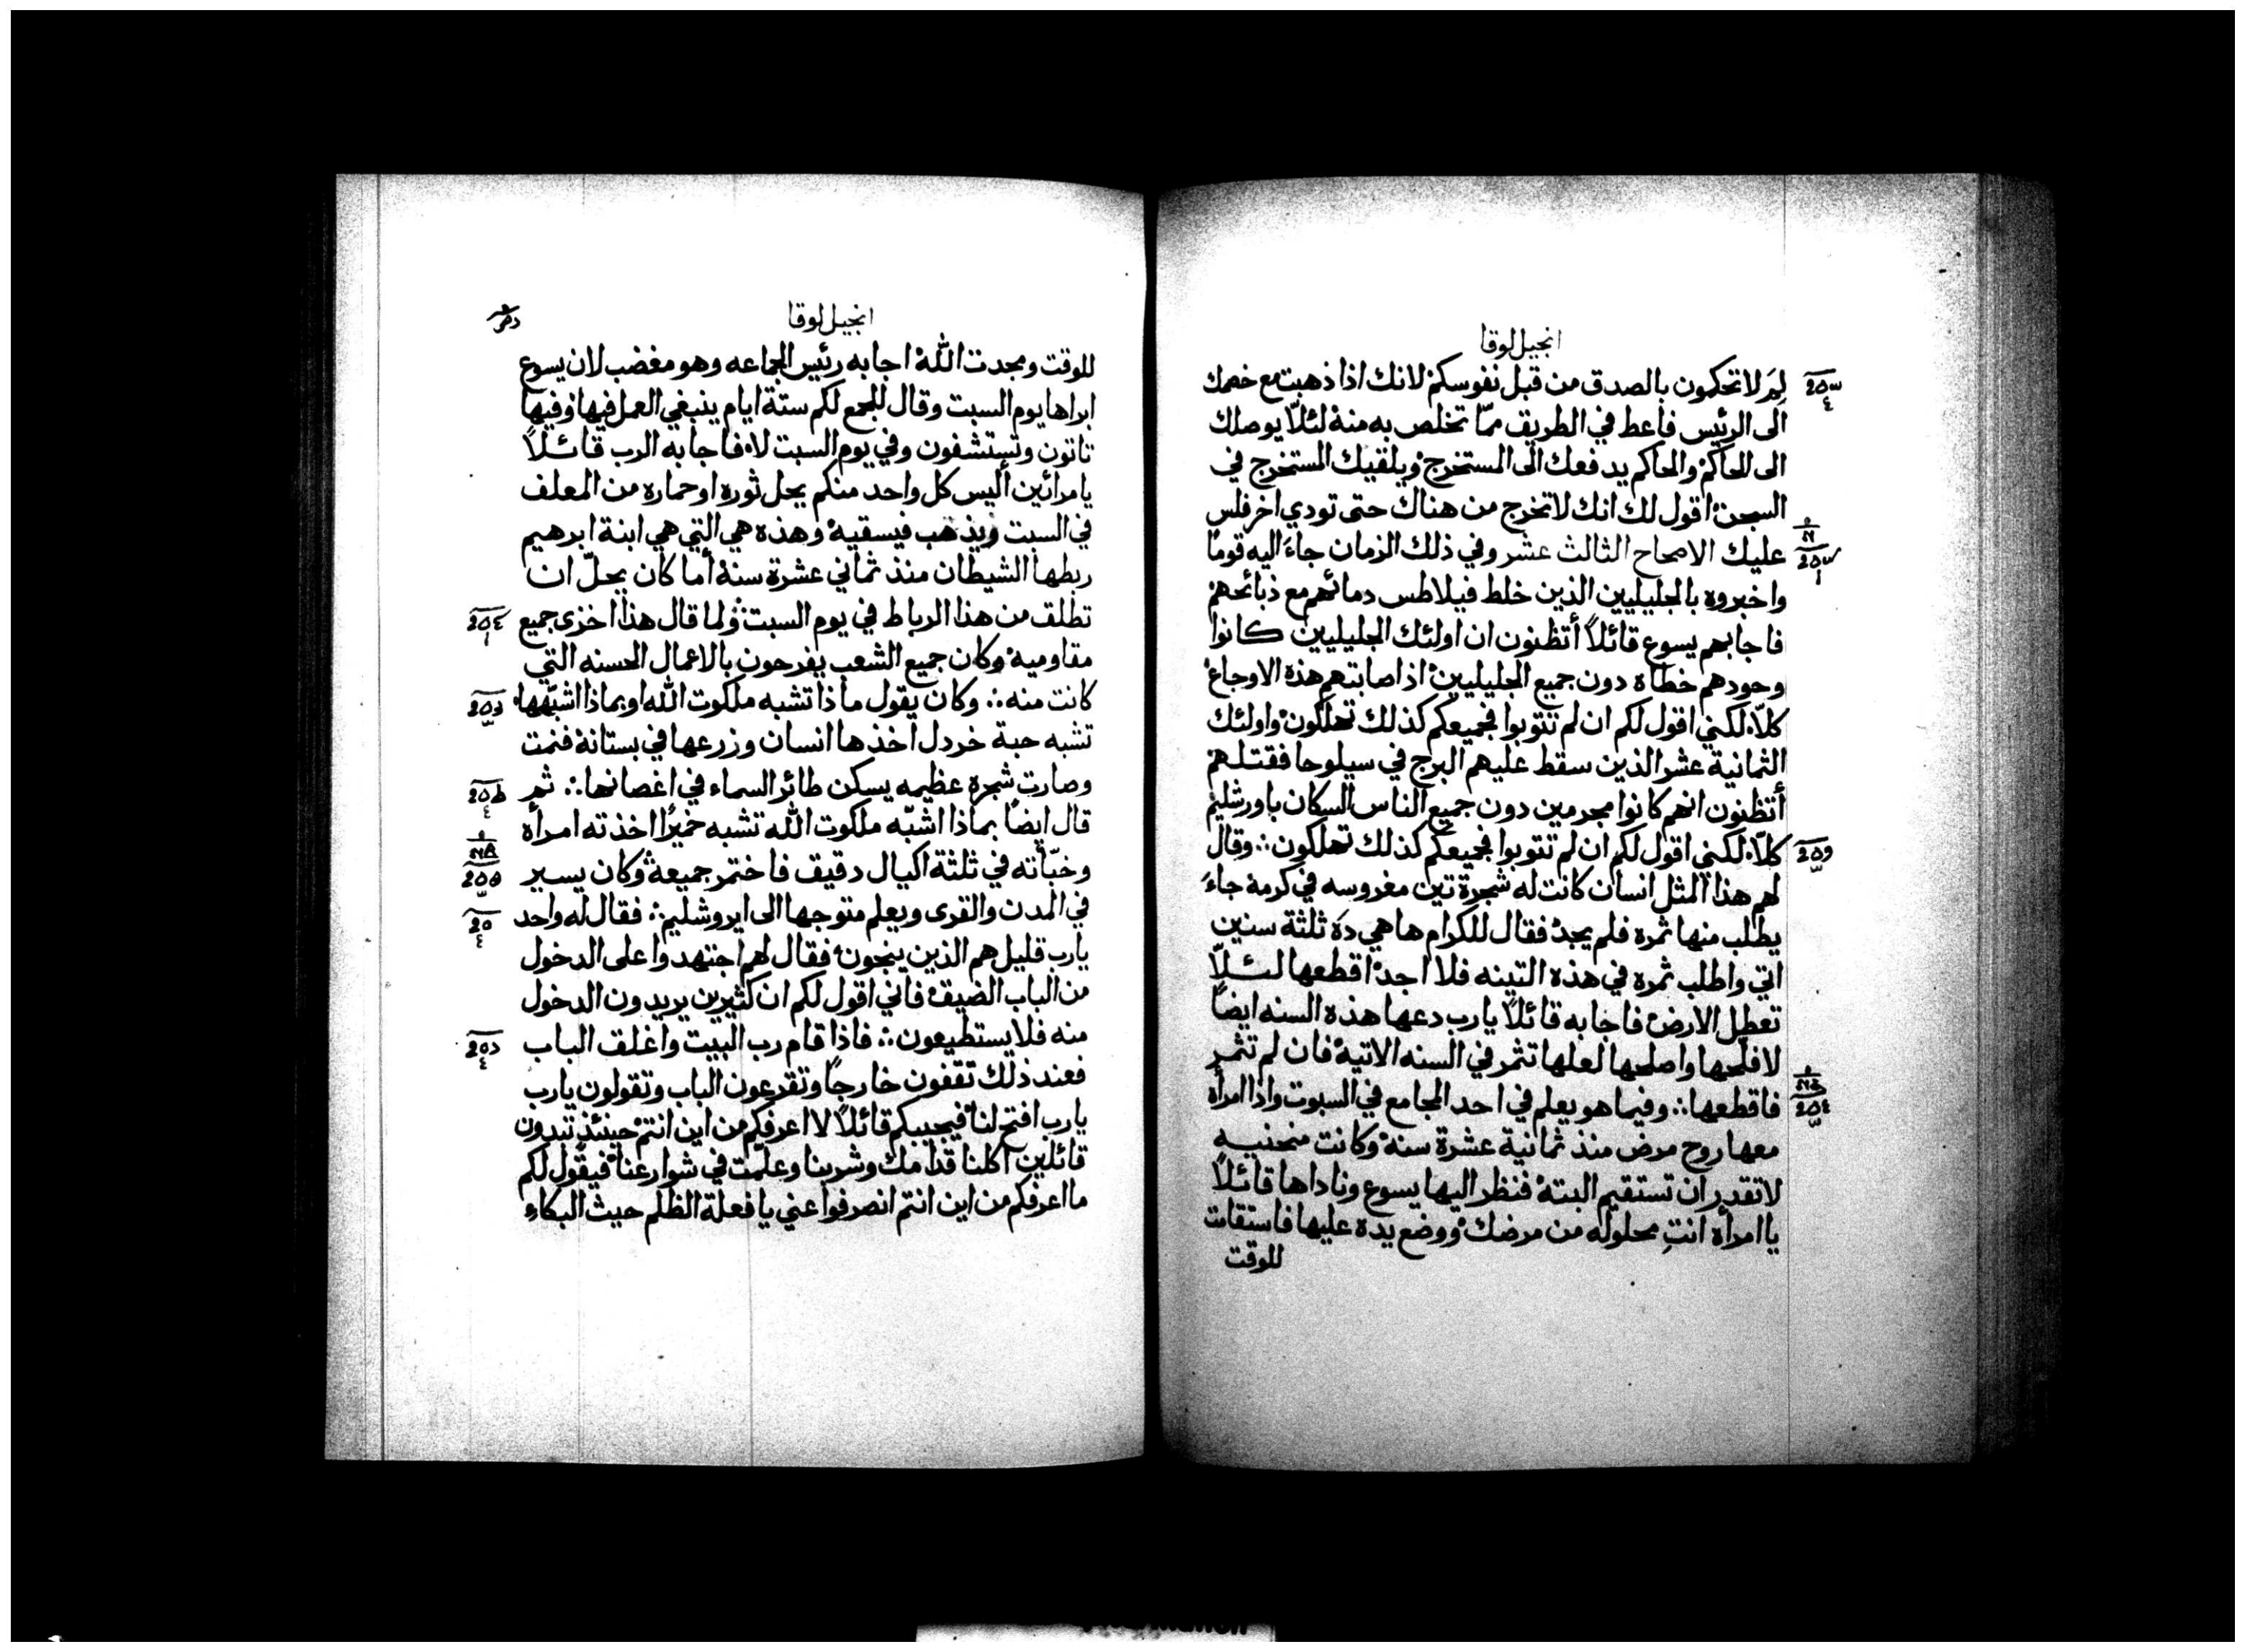 انجيل لوقا
لِمَ لا تحكمون بالصدق من قبل نفوسكم لانك اذا ذهبت مع خصمك
الى الرئيس فاعط في الطريق ممّا تخلص به منه لئلّا يوصلك
الى الحاكم والحاكم يدفعك الى المستخرج ويلقيك المستخرج في
السجن اقول لك انك لا تخرج من هناك حتى تودي اخر فلس
عليك الاصحاح الثالث عشر وفي ذلك الزمان جاءَ اليه قومًا
واخبروه بالجليليين الذين خلط فيلاطس دمائهم مع ذبائحهم
فاجابهم يسوع قائلاً أتظنون ان اولئك الجليليين كانوا
وحودهم خطاه دون جميع الجليليين اذ اصابتهم هذه الاوجاع
كلّا لكني اقول لكم ان لم تتوبوا فجميعكم كذلك تهلكون واولئك
الثمانية عشر الذين سقط عليهم البرج في سيلوحا فقتلهم
أتظنون انهم كانوا مجرمين دون جميع الناس السكان باورشليم
كلّا لكني اقول لكم ان لم تتوبوا فجميعكم كذلك تهلكون ∴ وقال
لهم هذا المثل انسان كانت له شجرة تين مغروسه في كرمة جاءَ
يطلب منها ثمره فلم يجد فقال للكرام ها هي ذه ثلثة سنين
اتي واطلب ثمره في هذه التينه فلا اجد اقطعها لئلّا
تعطل الارض فاجابه قائلاً يا رب دعها هذه السنه ايضاً
لافلحها واصلحها لعلها تثمر في السنه الاتية فان لم تثمر
فاقطعها ∴ وفيما هو يعلم في احد المجامع في السبوت واذا امرأة
معها روح مرض منذ ثمانية عشرة سنة وكانت منحنيه
لا تقدر ان تستقيم البتة فنظر اليها يسوع وناداها قائلاً
يا امرأة انتِ محلوله من مرضك ووضع يده عليها فاستقامت
للوقت
انجيل لوقا
للوقت ومجدت الله اجابه رئيس الجماعه وهو مغضب لان يسوع
ابراها يوم السبت وقال للجمع لكم ستة ايام ينبغي العمل فيها وفيها
تاتون وتستشفون وفي يوم السبت لا فاجابه الرب قائلاً
يا مرائين أليس كل واحد منكم يحل ثوره او حماره من المعلف
في السبت ويذهب فيسقيه وهذه هي التي هي ابنة ابرهيم
ربطها الشيطان منذ ثماني عشرة سنة أما كان يحلّ ان
تطلق من هذا الرباط في يوم السبت ولما قال هذا اخزى جميع
مقاوميه وكان جميع الشعب يفرحون بالاعمال الحسنه التي
كانت منه ∴ وكان يقول ماذا تشبه ملكوت الله او بماذا اشبّهها
تشبه حبة خردل اخذها انسان وزرعها في بستانة فنمت
وصارت شجرة عظيمه يسكن طائر السماء في اغصانها ∴ ثم
قال ايضاً بماذا اشبّه ملكوت الله تشبه خميرًا اخذته امرأة
وخبّأته في ثلثة اكيال دقيق فاختمر جميعة وكان يسير
في المدن والقرى ويعلم متوجها الى ايروشليم ∴ فقال له واحد
يا رب قليل هم الذين ينجون فقال لهم اجتهدوا على الدخول
من الباب الضيق فاني اقول لكم ان كثيرين يريدون الدخول
منه فلا يستطيعون ∴ فاذا قام رب البيت واغلق الباب
فعند ذلك تقفون خارجاً وتقرعون الباب وتقولون يا رب
يا رب افتح لنا فيجيبكم قائلاً لا اعرفكم من اين انتم حينئذ تبدون
قائلين اكلنا قدامك وشربنا وعلّمت في شوارعنا فيقول لكم
ما اعرفكم من اين انتم انصرفوا عني يا فعلة الظلم حيث البكاءِ